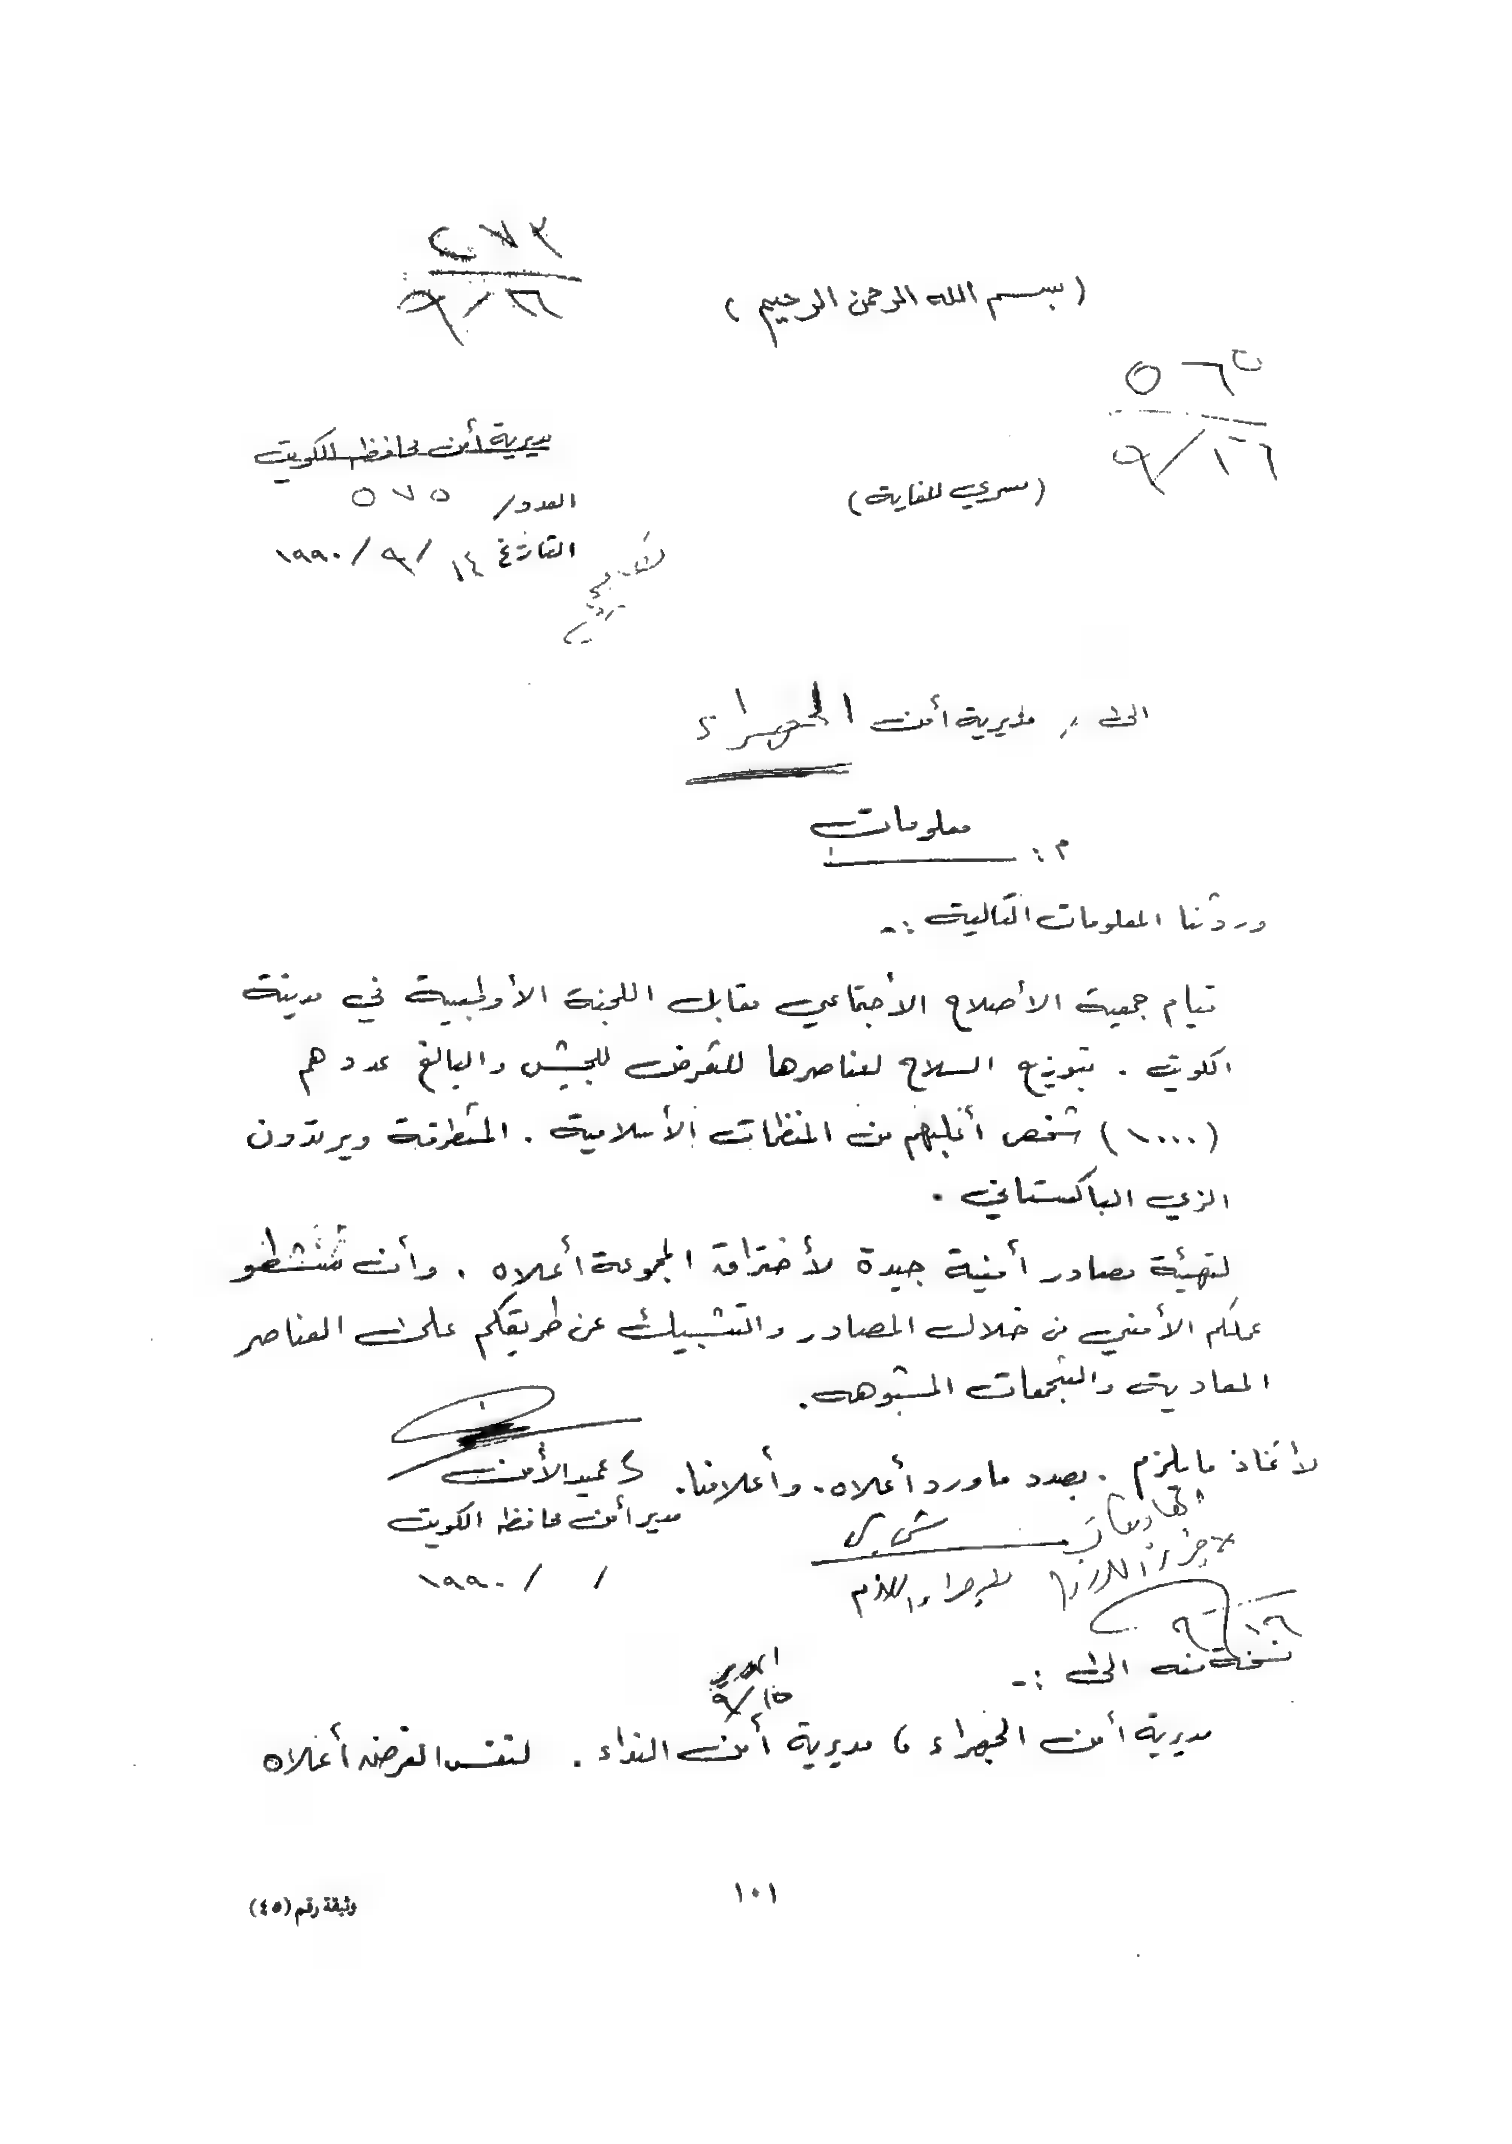 ٢٧٣
٩/٦
(بسم الله الرحمن الرحيم)
٥٦٥
٩/١٦
مديرية أمن محافظة الكويت
(سري للغاية)
العدد/ ٥٧٥
التاريخ ١٤/٩/١٩٩٠
الى / مديرية أمن الجهراء
م: معلومات
وردتنا المعلومات التالية :-
قيام جمعية الأصلاح الأجتماعي مقابل اللجنة الأولمبية في مدينة
الكويت . بتوزيع السلاح لعناصرها للتعرض للجيش والبالغ عددهم
(١٠٠٠) شخص أغلبهم من المنظمات الأسلامية . المتطرفة ويرتدون
الزي الباكستاني .
لتهيئة مصادر أمنية جيدة لأختراق المجموعة أعلاه . وأن تنشطو
عملكم الأمني من خلال المصادر والتشبيك عن طريقكم على العناصر
المعادية والتجمعات المشبوهه.
لأتخاذ مايلزم . بصدد ماورد أعلاه. وأعلامنا.
عميد الأمن
مدير أمن محافظة الكويت
/ / ١٩٩٠
للاجراء اللازم
٩/١٦
المدير
٩/١٥
نسخة منه الى :-
مديرية أمن الجهراء ، مديرية أمن النداء . لنفس الغرض أعلاه
١٠١
وثيقة رقم (٤٥)